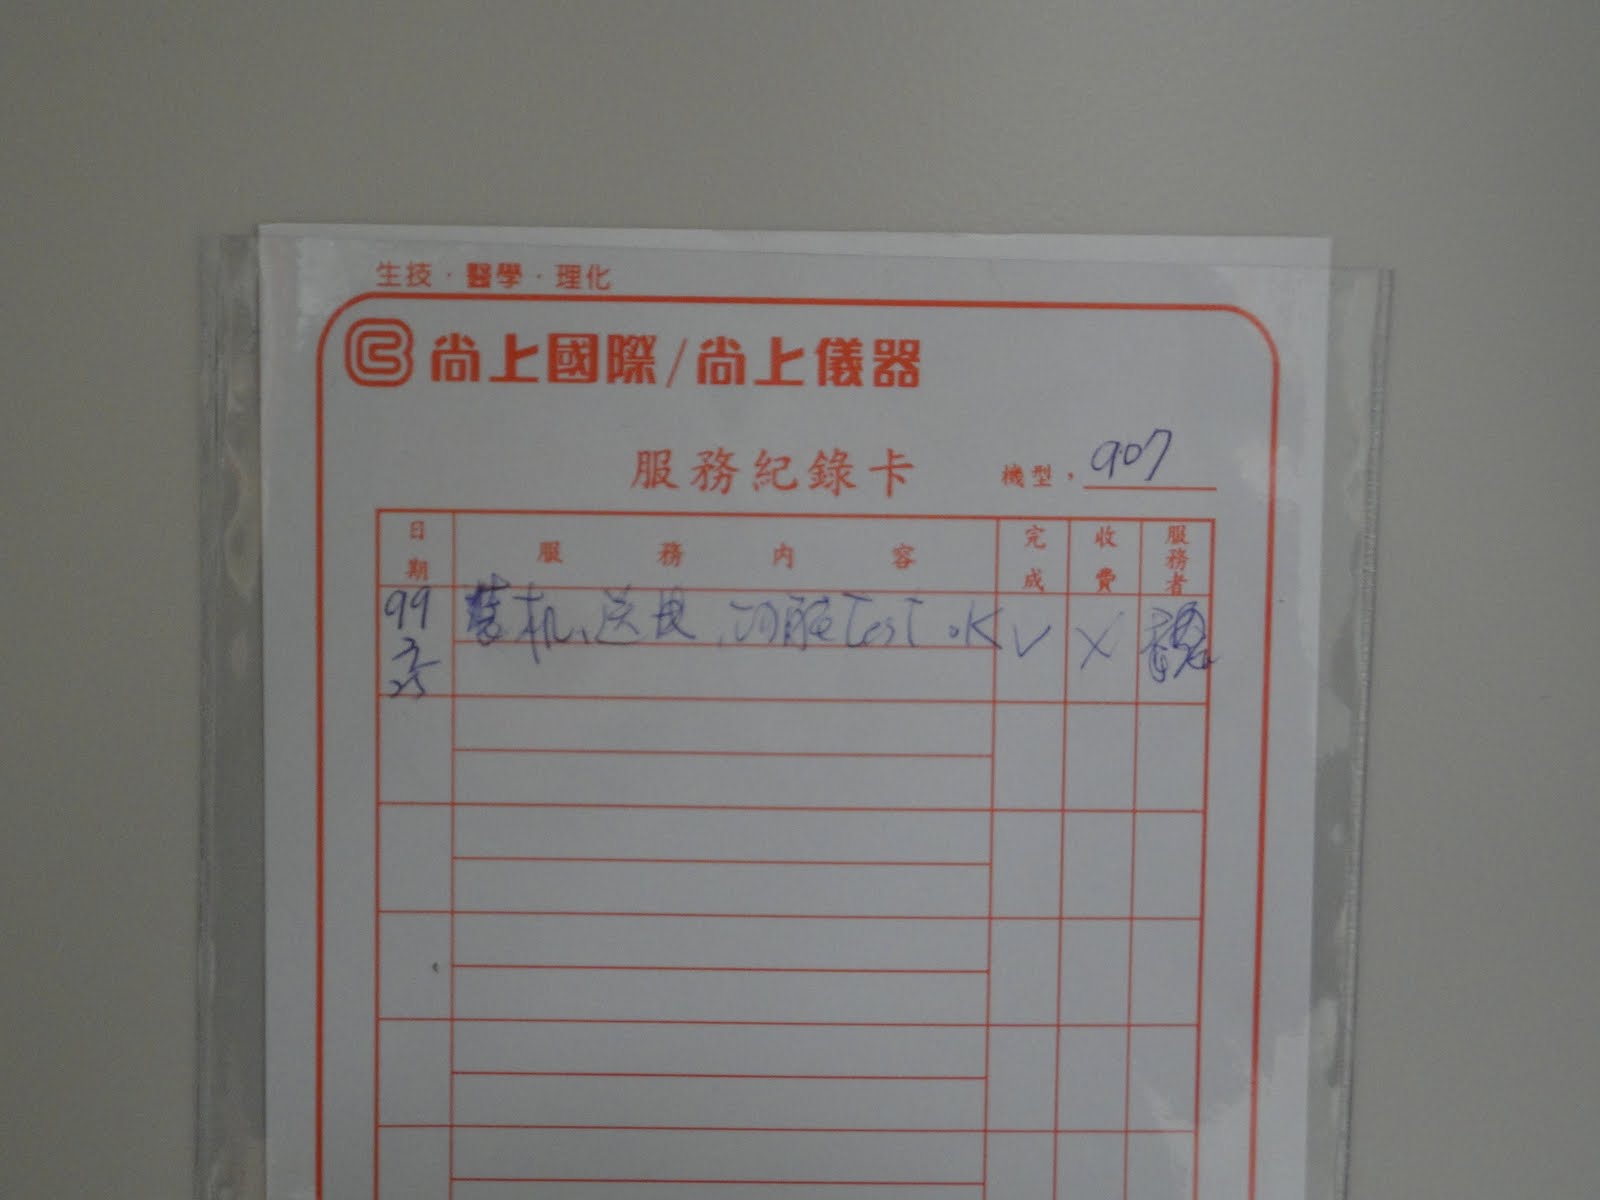 生技·醫學·理化
尚上國際/尚上儀器
服務紀錄卡
機型, 907
日期 服務內容 完成 收費 服務者
99 3/25 裝机、送電、功能 Test OK V X